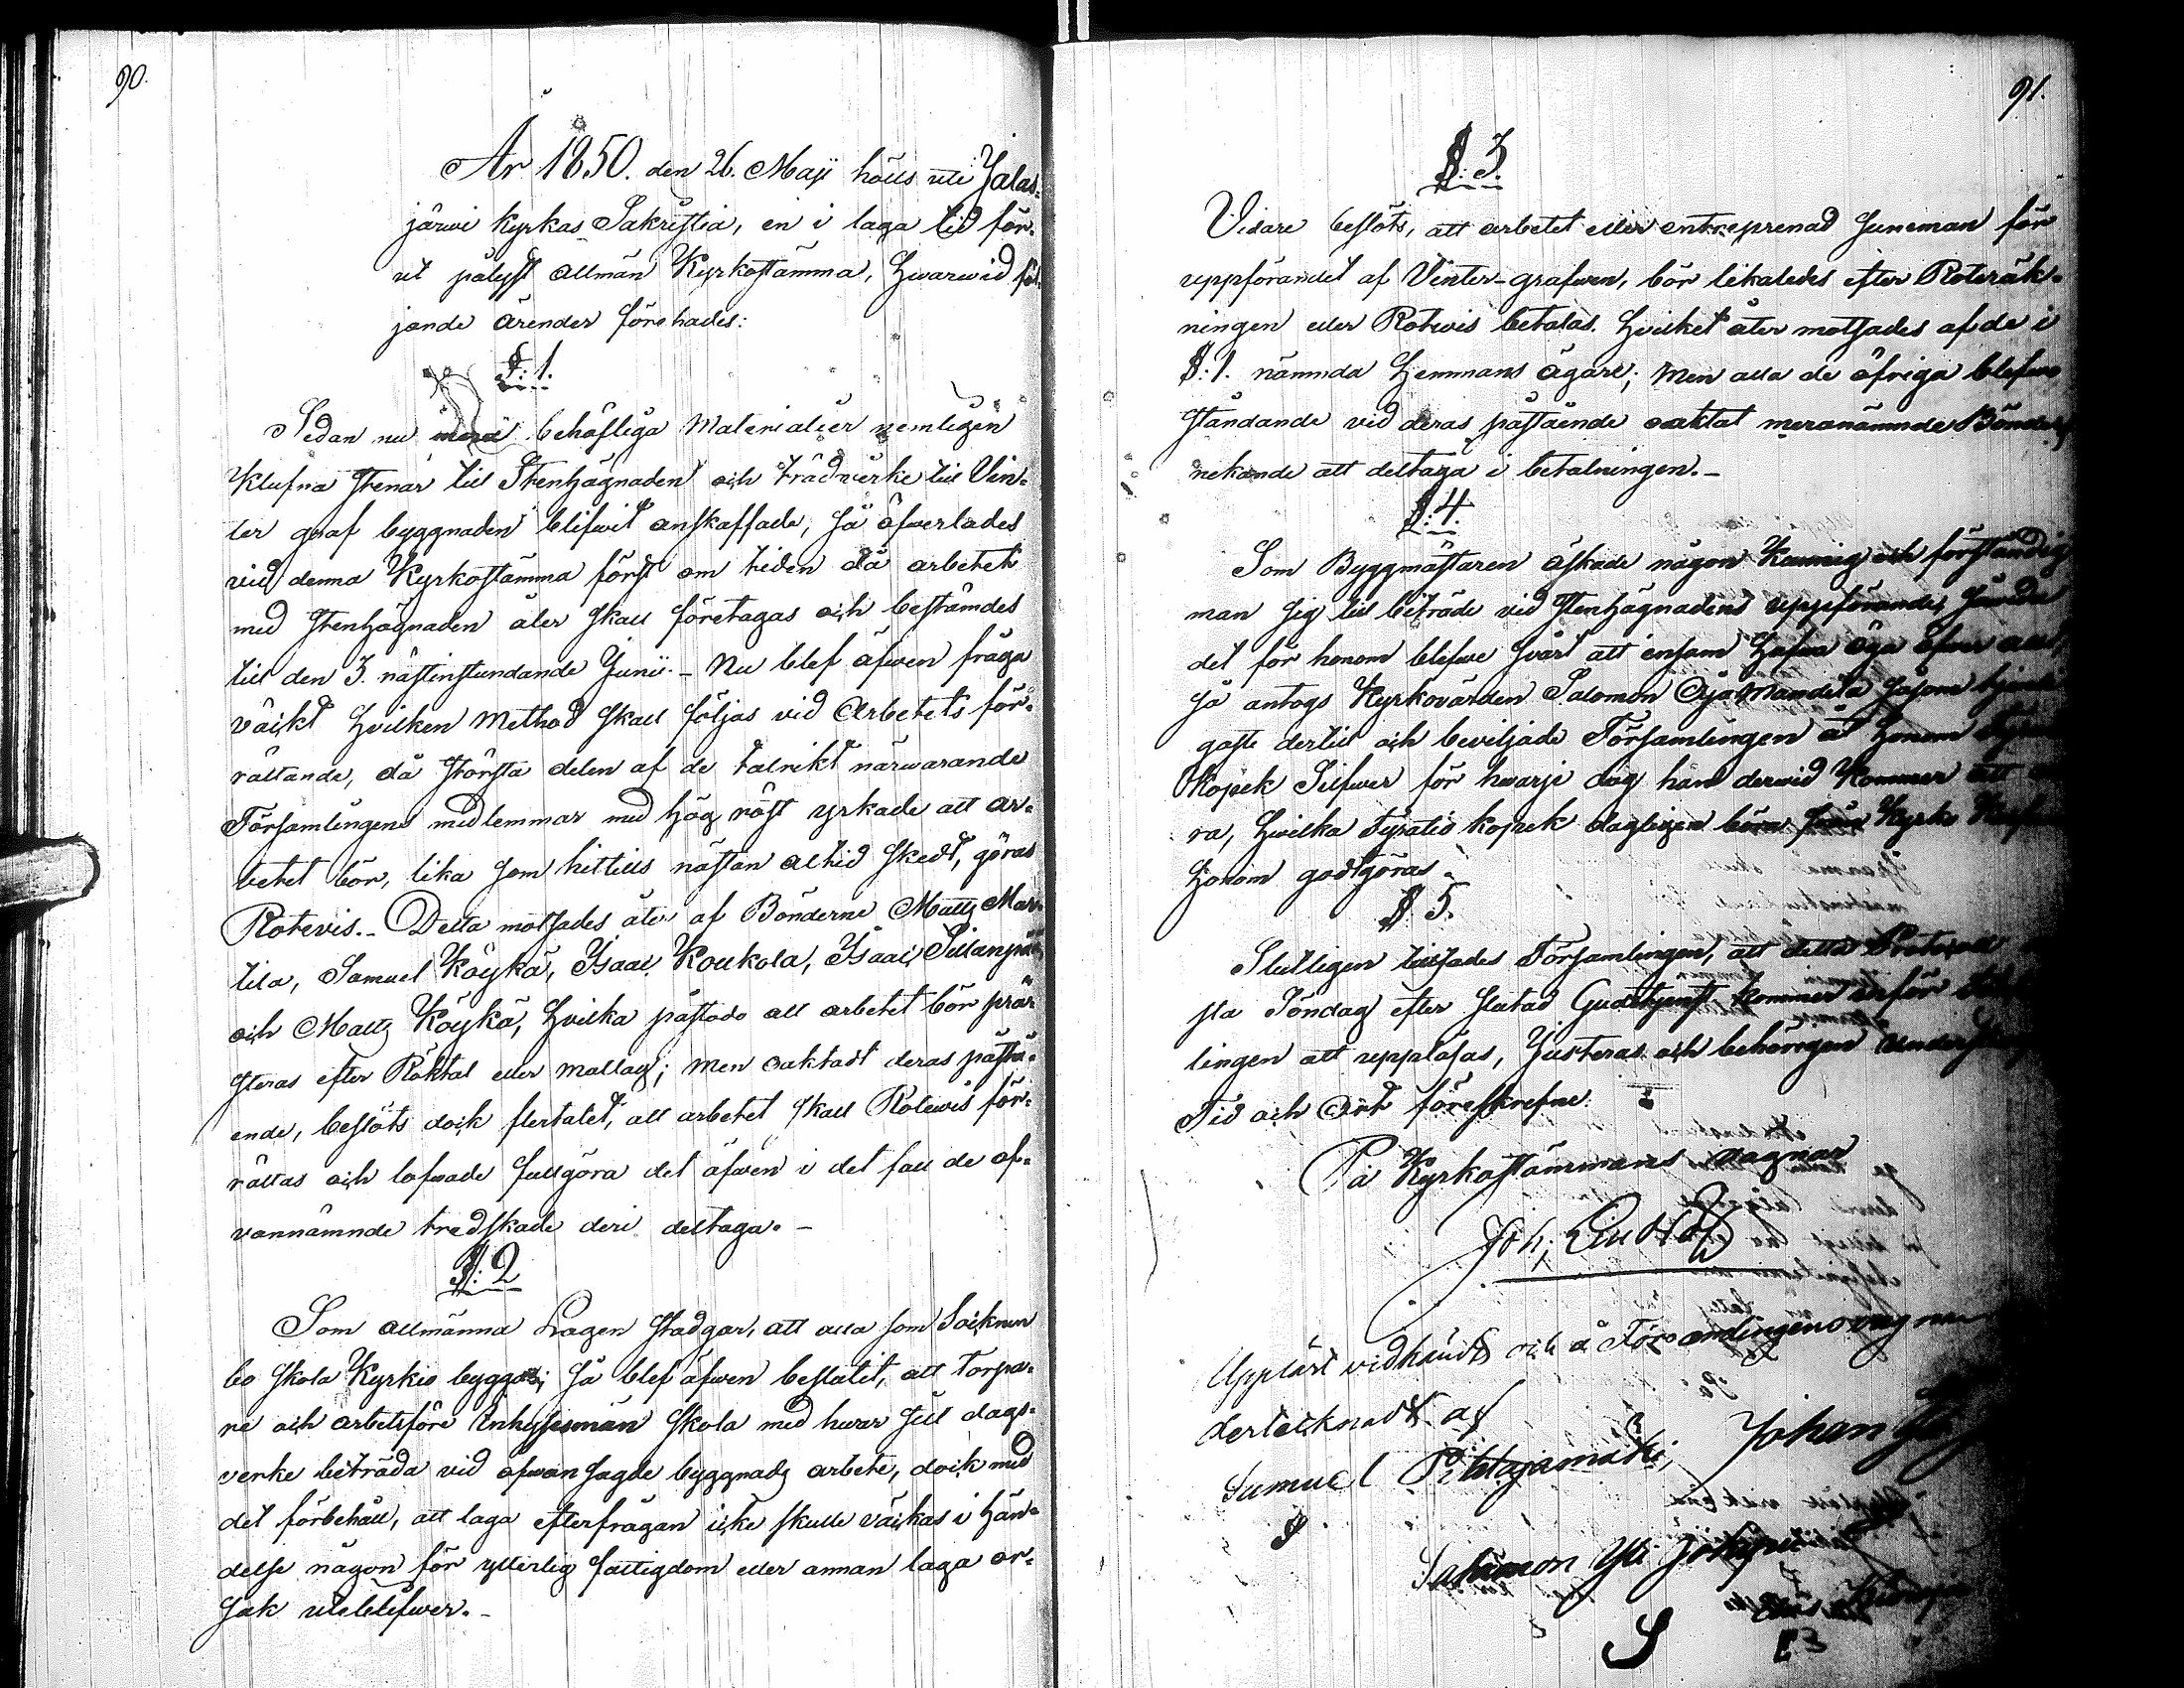 90.
År 1850. den 26. Maji hölls uti Jalas-
järwi kyrkas Sakristia, en i laga tid för-
ut pålyst allmän Kyrkostämma, hwarwid föl-
jande ärender förehades:
§: 1.
Sedan nu mera behöfliga Materialier nemligen
klufna stenar till Stenhägnaden och trädvirke till Vin-
ter graf byggnaden blifwit anskaffade, så öfwerlades
vid denna Kyrkostämma först om tiden då arbetet
med stenhägnaden åter skall företagas och bestämdes
till den 3. nästinstundande Junii. - Nu blef äfwen fråga
väckt hvilken Method skall följas vid Arbetets för-
rättande, då största delen af de talrikt närwarande
Församlingens medlemmar med hög röst yrkade att ar-
betet bör, lika som hittills nästan altid skedt, göras
Rotevis. - Detta motsades åter af Bönderne Matts Mar-
tila, Samuel Köykä, Isaac Koukola, Isaac Sillanpää
och Matts Köykä, hvilka påstodo att arbetet bör præ-
steras efter Röktal eller mattag; men oaktadt deras påstå-
ende, beslöts dock flertalet, att arbetet skall Rotewis för-
rättas och lofwade fullgöra det äfwen i det fall de of-
vannämnde tredskade deri deltaga. -
§: 2
Som allmänna Lagen stadgar, att alla som Socknen
bo skola Kyrkio bygga; så blef äfwen beslutit, att torpa-
re och arbetsföre Inhyseman skola med hwar sitt dags-
verke biträda vid ofwan sagde byggnads arbete, dock med
det förbehåll, att laga efterfrågan icke skulle väckas i hän-
delse någon för ytterlig fattigdom eller annan laga or-
sak uteblifwer. -
91.
§: 3.
Vidare beslöts, att arbetet eller entreprenad summan för
uppförandet af Vinter-grafwen, bör likaledes efter Roteräk-
ningen eller Rotwis betalas. Hvilket åter motsades af de i
§: 1. nämnda Hemmans ägare; Men alla de öfriga blefwo
ståndande vid deras påstående oaktat meranämnde Bönders
nekande att deltaga i betalningen. -
§: 4.
Som Byggmästaren äskade någon Kunnig och förståndig
man sig till biträde vid Stenhägnadens uppförande,
det för honom blefwe svårt att ensam hafwa öga öfwer allt,
så antogs Kyrkovärden Salomon Mandila såsom
gaste dertill och beviljade Församlingen åt honom
Kopek Silfwer för hwarje dag han derwid Kommer att
ra, hwilka tyratio kopek dagligen böra från Kyrko
honom godtgöras.
§ 5.
Slutligen tillsades Församlingen, att detta Protocoll
sta Söndag efter slutad Gudstjenst kommer inför
lingen att uppläsas, Justeras och behörigen
Tid och Ort föreskrefne.
På Kyrkostämmans vägnar
Joh:
Uppläst vidkändt och å Församlingens vägnar
dertecknadt af
Samuel Pihlajamäki, Johan
Salomon Yli